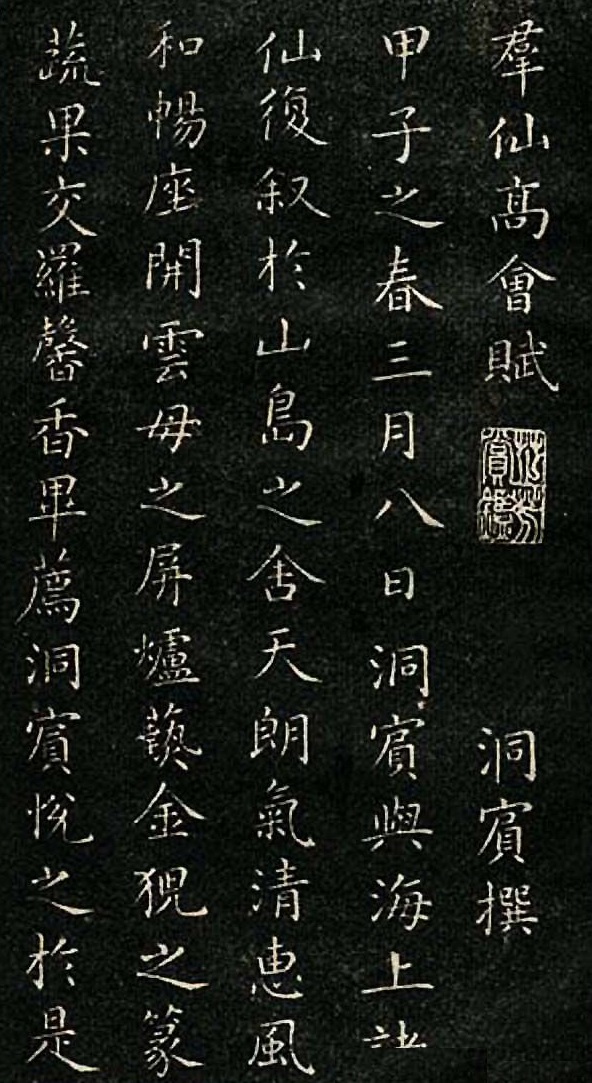 羣仙高會賦 洞賓撰
甲子之春三月八日洞賓與海上諸
仙復叙於山島之舍天朗氣清惠風
和暢座開雲母之屏爐藝金猊之篆
蔬果交羅馨香畢薦洞賓悅之於是